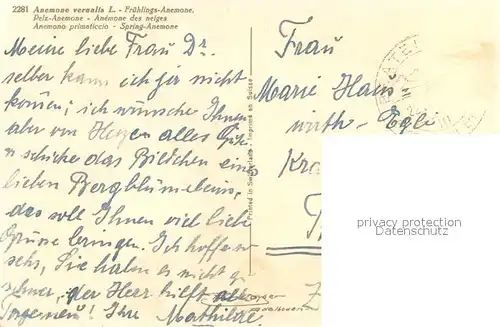 2281 Anemone vernalis L. - Frühlings-Anemone,
Pelz-Anemone - Anémone des neiges
Anemono primaticcio - Spring-Anemone
Meine liebe Frau Dr.
selber kann ich ja nicht
kommen; ich wünsche Ihnen
aber von Herzen alles Gute
schicke das Bildchen eines
lieben Bergblümeleins,
das soll Ihnen viel liebe
Grüsse bringen. Ich hoffe
sehr, Sie haben es nicht
schwer, der Herr hilft
tragen! Ihre Mathilde.
Printed in Switzerland - Imprimé en Suisse
Frau
Marie Haus
wirth-Egli
privacy protection
Datenschutz